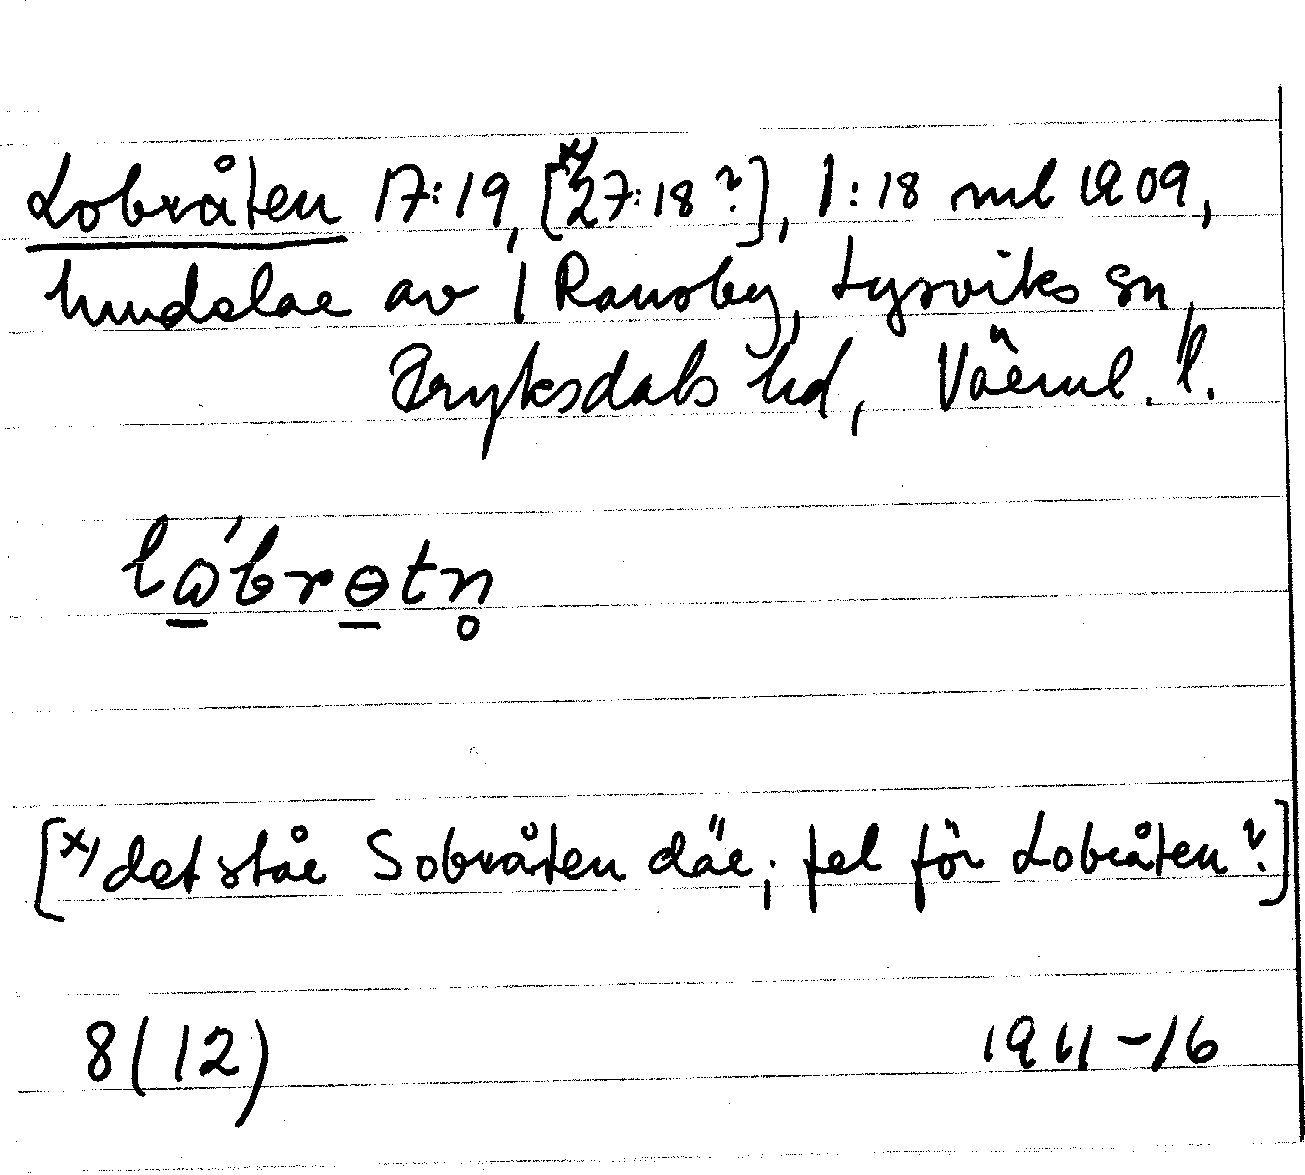 Lobråten 17:19, [x) 27:18?], 1:18 ml 1909,
hundslar av 1 Ransby, Lysviks sn,
Fryksdals hd, Värml. l.
lɷ́brɵtn̥
[x) det står Sobråten där; fel för Lobråten?]
8(12) 1911-16